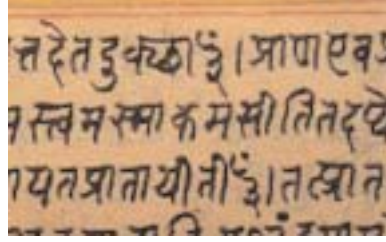 त्तदेतदुक्थाँ३।प्राणएव
स्त्वमस्माकमसीतितदप्ये
यतप्रातायीतीँ३।तत्प्रात